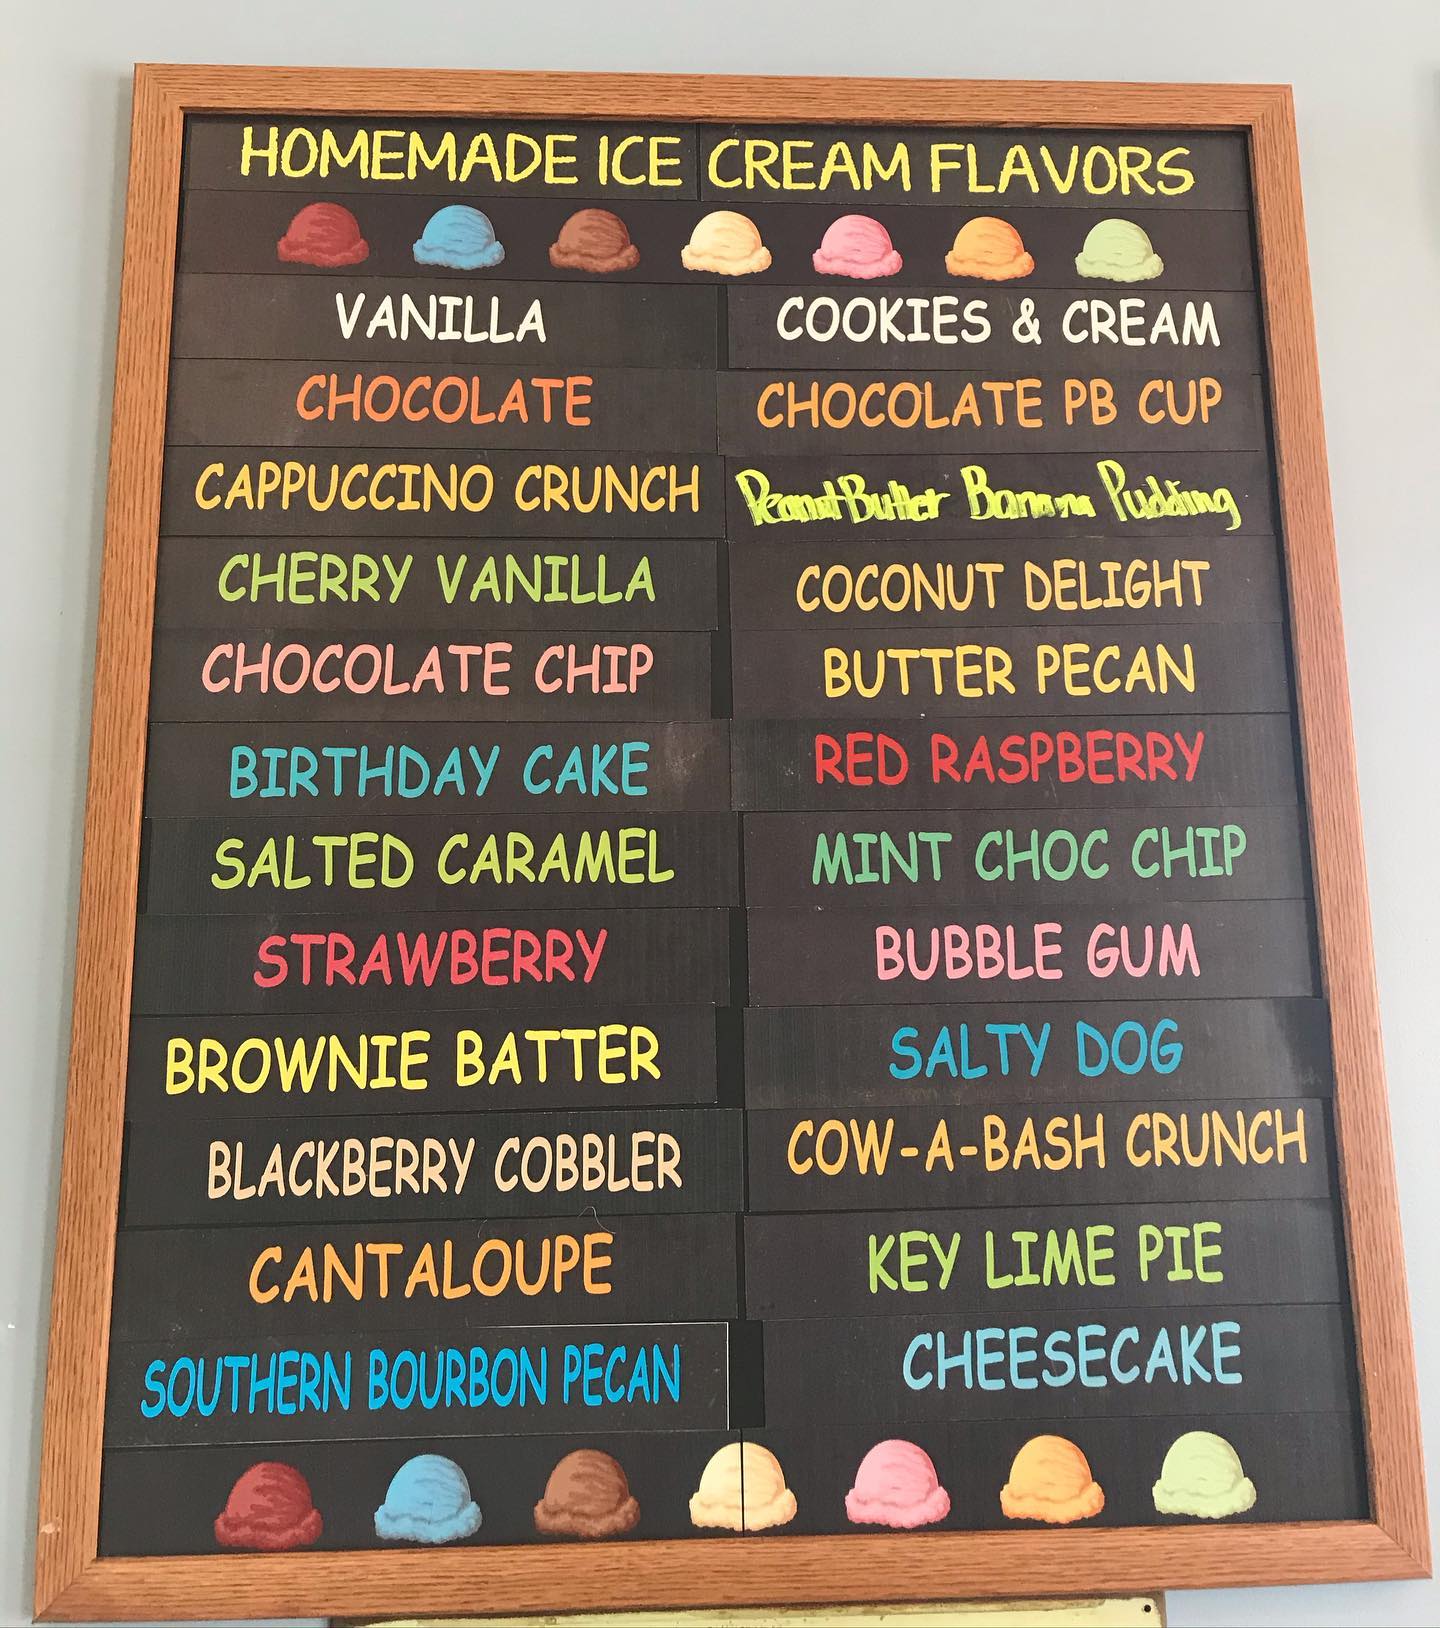 HOMEMADE ICE CREAM FLAVORS
VANILLA
COOKIES & CREAM
CHOCOLATE
CHOCOLATE PB CUP
CAPPUCCINO CRUNCH
Peanut Butter Banana Pudding
CHERRY VANILLA
COCONUT DELIGHT
CHOCOLATE CHIP
BUTTER PECAN
BIRTHDAY CAKE
RED RASPBERRY
SALTED CARAMEL
MINT CHOC CHIP
STRAWBERRY
BUBBLE GUM
BROWNIE BATTER
SALTY DOG
BLACKBERRY COBBLER
COW-A-BASH CRUNCH
CANTALOUPE
KEY LIME PIE
SOUTHERN BOURBON PECAN
CHEESECAKE